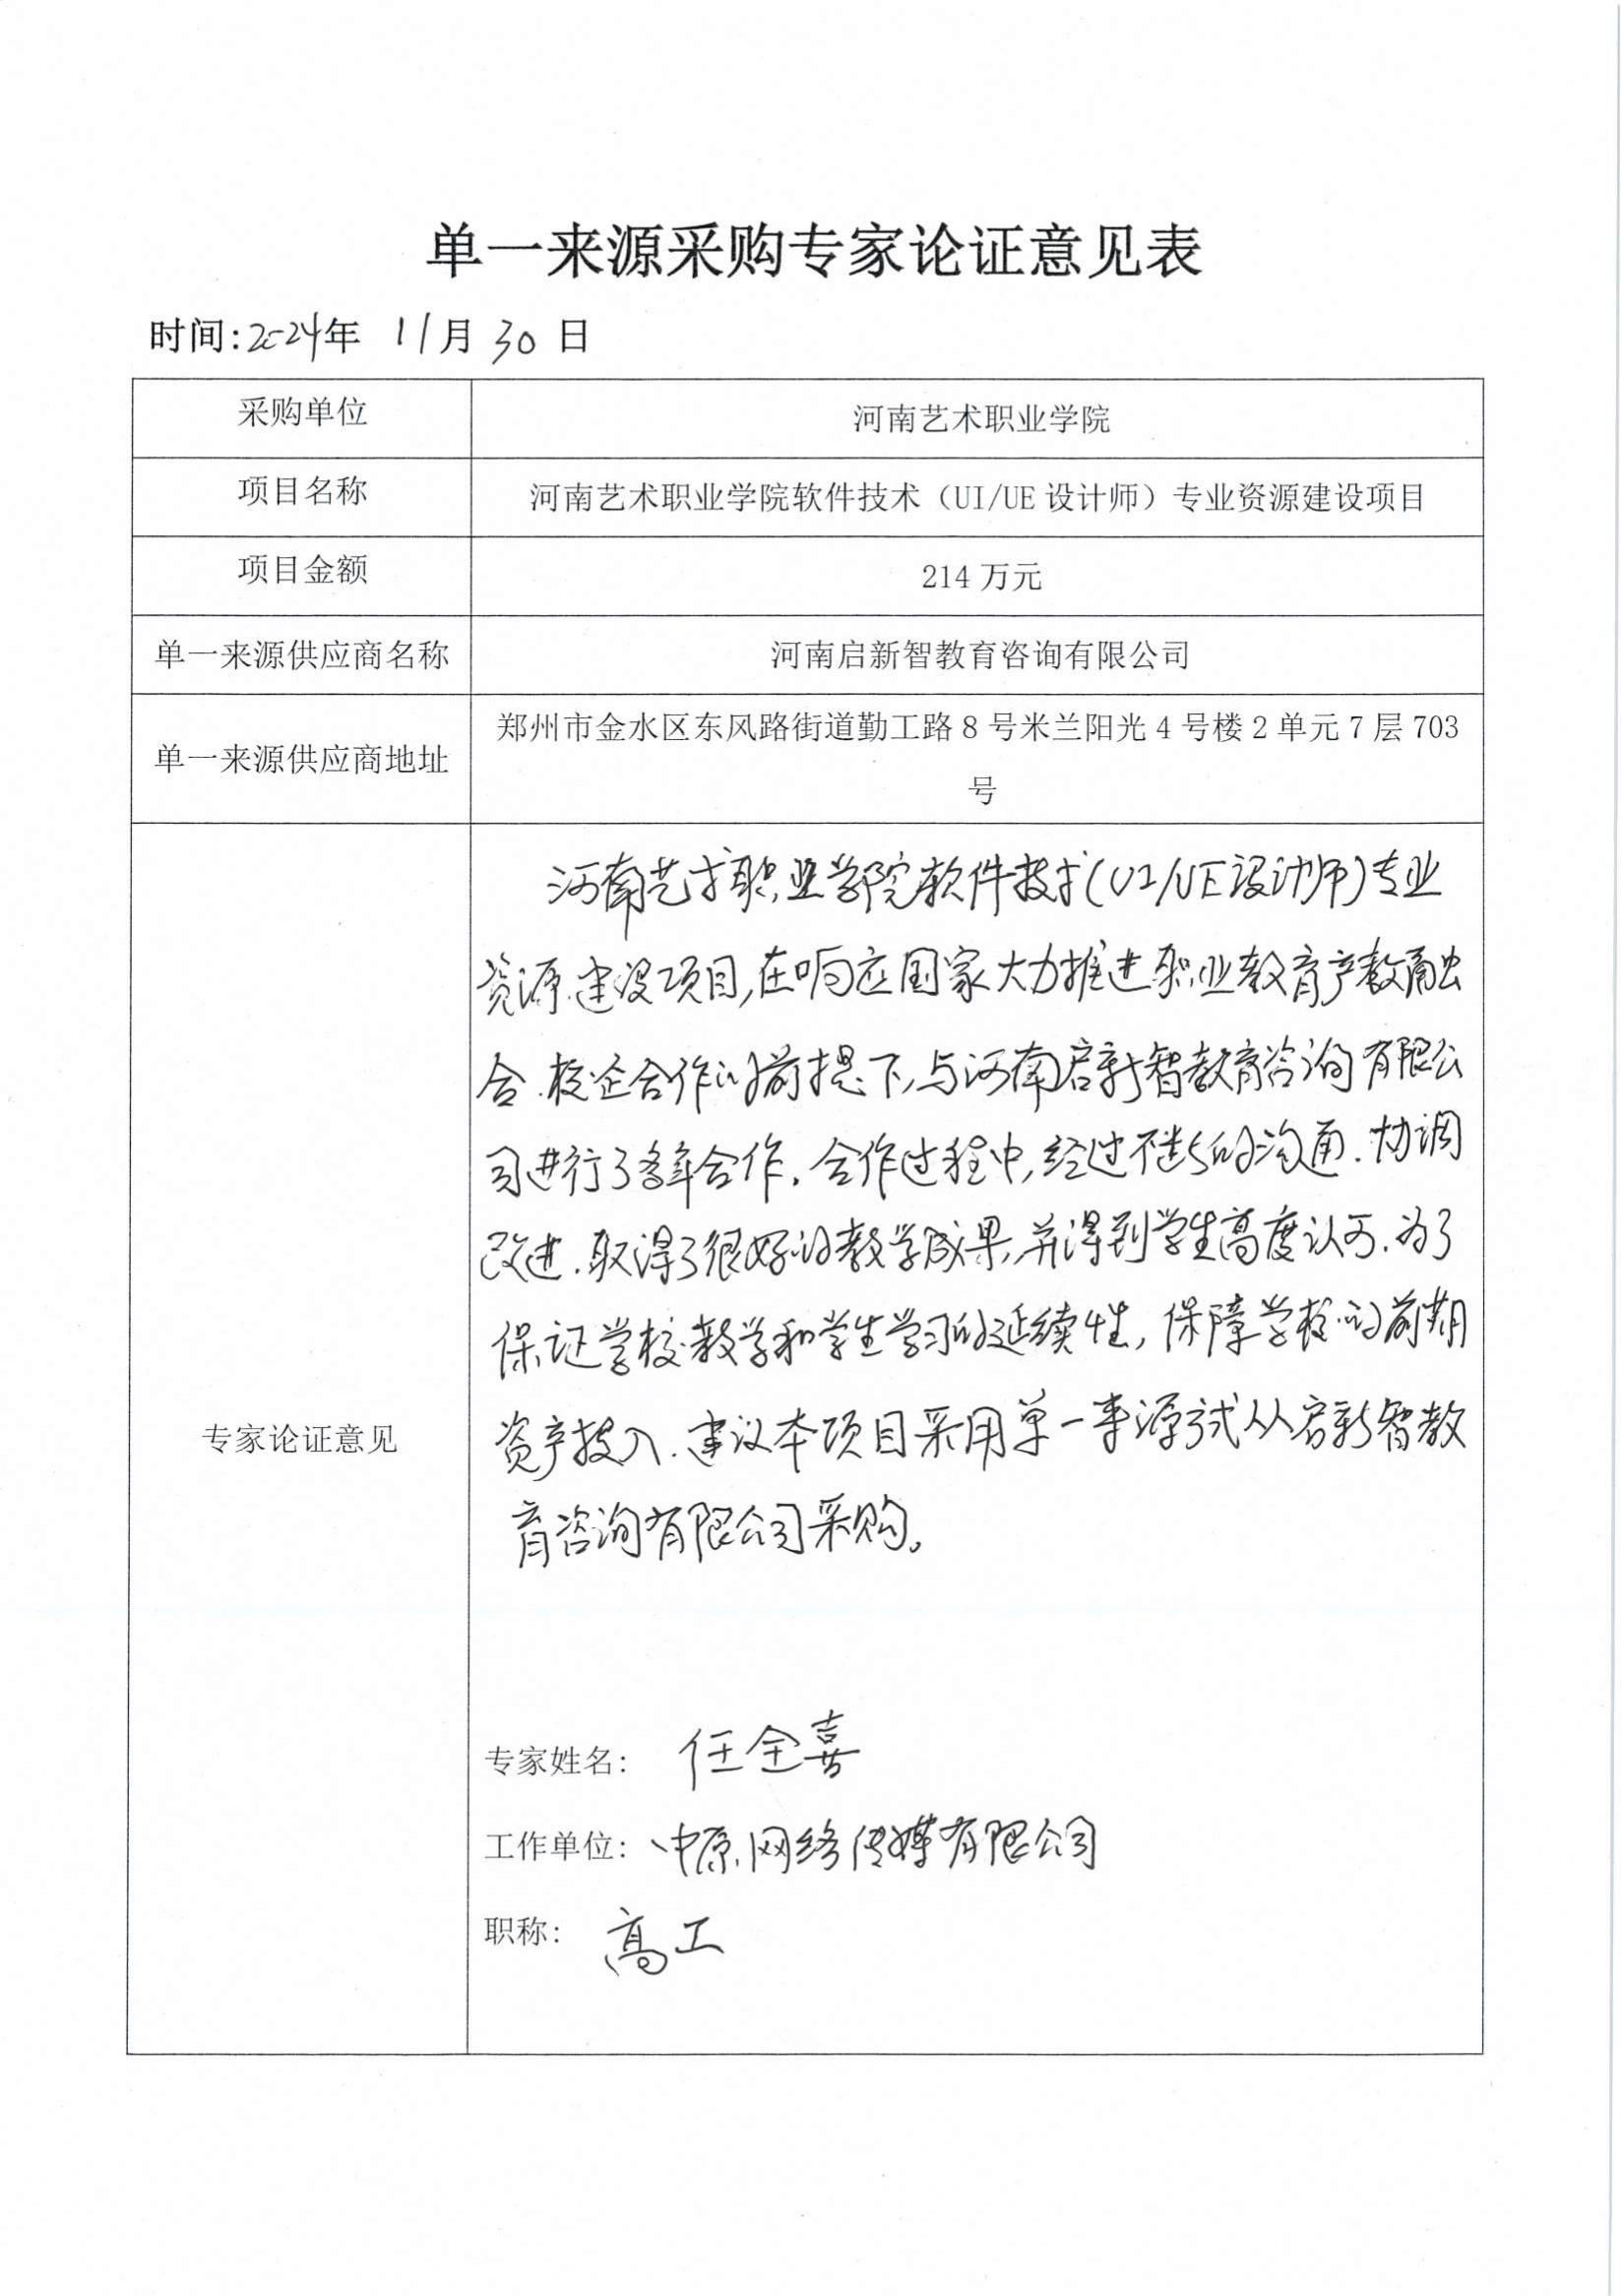 单一来源采购专家论证意见表
时间:2024年 11月 30日
采购单位
河南艺术职业学院
项目名称
河南艺术职业学院软件技术（UI/UE设计师）专业资源建设项目
项目金额
214万元
单一来源供应商名称
河南启新智教育咨询有限公司
单一来源供应商地址
郑州市金水区东风路街道勤工路8号米兰阳光4号楼2单元7层703
号
专家论证意见
河南艺术职业学院软件技术(UI/UE设计师)专业
资源建设项目,在响应国家大力推进职业教育产教融
合、校企合作的前提下,与河南启新智教育咨询有限公
司进行了多年合作。合作过程中,经过不断的沟通、协调
改进、取得了很好的教学成果,并得到学生高度认可.为了
保证学校教学和学生学习的延续性,保障学校的前期
资产投入、建议本项目采用单一来源式从启新智教
育咨询有限公司采购。
专家姓名: 任全喜
工作单位: 中原网络传媒有限公司
职称: 高工